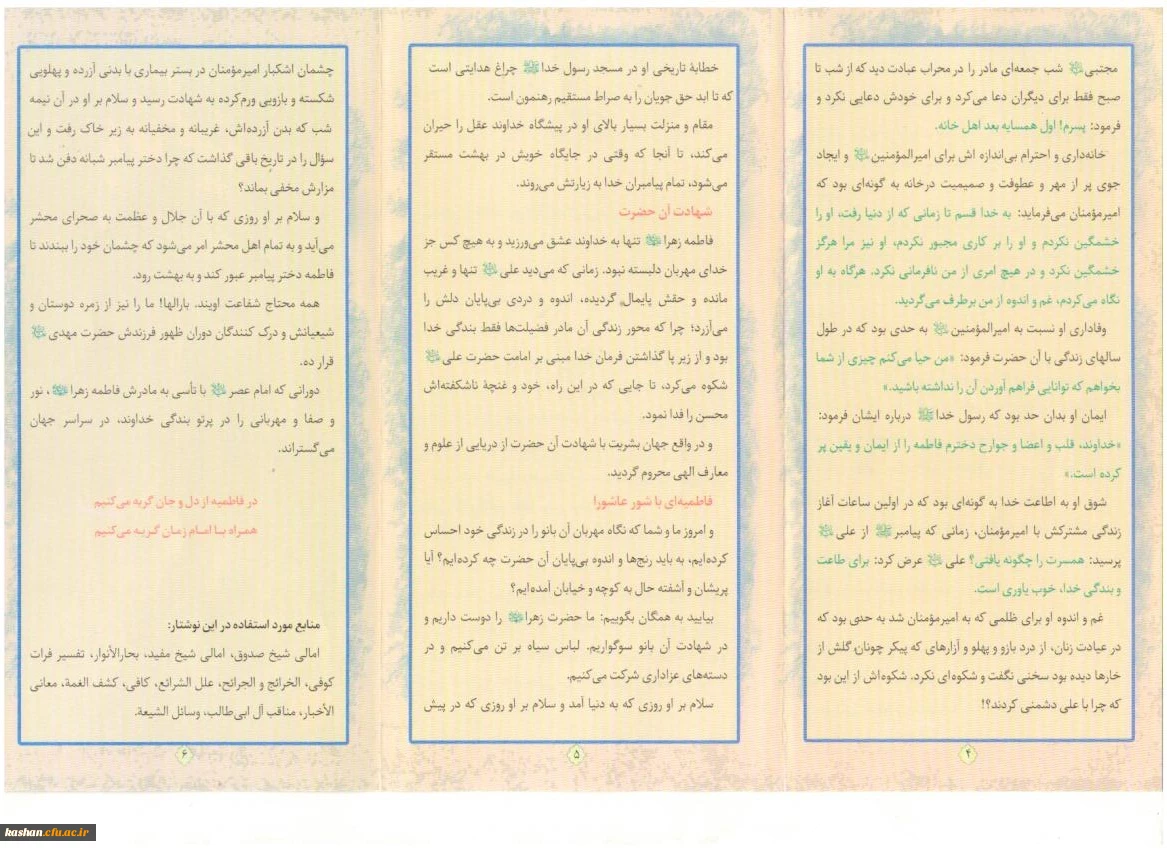 مجتبی شب جمعه‌ای مادر را در محراب عبادت دید که از شب تا
صبح فقط برای دیگران دعا می‌کرد و برای خودش دعایی نکرد و
فرمود: پسرم! اول همسایه بعد اهل خانه.
خانه‌داری و احترام بی‌اندازه اش برای امیرالمؤمنین و ایجاد
جوی پر از مهر و عطوفت و صمیمیت درخانه به گونه‌ای بود که
امیرمؤمنان می‌فرماید: به خدا قسم تا زمانی که از دنیا رفت، او را
خشمگین نکردم و او را بر کاری مجبور نکردم، او نیز مرا هرگز
خشمگین نکرد و در هیچ امری از من نافرمانی نکرد. هرگاه به او
نگاه می‌کردم، غم و اندوه از من برطرف می‌گردید.
وفاداری او نسبت به امیرالمؤمنین به حدی بود که در طول
سالهای زندگی با آن حضرت فرمود: «من حیا می‌کنم چیزی از شما
بخواهم که توانایی فراهم آوردن آن را نداشته باشید.»
ایمان او بدان حد بود که رسول خدا درباره ایشان فرمود:
«خداوند، قلب و اعضا و جوارح دخترم فاطمه را از ایمان و یقین پر
کرده است.»
شوق او به اطاعت خدا به گونه‌ای بود که در اولین ساعات آغاز
زندگی مشترکش با امیرمؤمنان، زمانی که پیامبر از علی
پرسید: همسرت را چگونه یافتی؟ علی عرض کرد: برای طاعت
و بندگی خدا، خوب یاوری است.
غم و اندوه او برای ظلمی که به امیرمؤمنان شد به حدی بود که
در عیادت زنان، از درد بازو و پهلو و آزارهای که پیکر چونان گلش از
خارها دیده بود سخنی نگفت و شکوه‌ای نکرد. شکوه‌اش از این بود
که چرا با علی دشمنی کردند؟!
۴
خطابهٔ تاریخی او در مسجد رسول خدا چراغ هدایتی است
که تا ابد حق جویان را به صراط مستقیم رهنمون است.
مقام و منزلت بسیار بالای او در پیشگاه خداوند عقل را حیران
می‌کند، تا آنجا که وقتی در جایگاه خویش در بهشت مستقر
می‌شود، تمام پیامبران خدا به زیارتش می‌روند.
شهادت آن حضرت
فاطمه زهرا تنها به خداوند عشق می‌ورزید و به هیچ کس جز
خدای مهربان دلبسته نبود. زمانی که می‌دید علی تنها و غریب
مانده و حقش پایمال گردیده، اندوه و دردی بی‌پایان دلش را
می‌آزرد؛ چرا که محور زندگی آن مادر فضیلت‌ها فقط بندگی خدا
بود و از زیر پا گذاشتن فرمان خدا مبنی بر امامت حضرت علی
شکوه می‌کرد، تا جایی که در این راه، خود و غنچهٔ ناشکفته‌اش
محسن را فدا نمود.
و در واقع جهان بشریت با شهادت آن حضرت از دریایی از علوم و
معارف الهی محروم گردید.
فاطمیه‌ای با شور عاشورا
و امروز ما و شما که نگاه مهربان آن بانو را در زندگی خود احساس
کرده‌ایم، به باید رنج‌ها و اندوه بی‌پایان آن حضرت چه کرده‌ایم؟ آیا
پریشان و آشفته حال به کوچه و خیابان آمده‌ایم؟
بیایید به همگان بگوییم: ما حضرت زهرا را دوست داریم و
در شهادت آن بانو سوگواریم. لباس سیاه بر تن می‌کنیم و در
دسته‌های عزاداری شرکت می‌کنیم.
سلام بر او روزی که به دنیا آمد و سلام بر او روزی که در پیش
۵
چشمان اشکبار امیرمؤمنان در بستر بیماری با بدنی آزرده و پهلویی
شکسته و بازویی ورم‌کرده به شهادت رسید و سلام بر او در آن نیمه
شب که بدن آزرده‌اش، غریبانه و مخفیانه به زیر خاک رفت و این
سؤال را در تاریخ باقی گذاشت که چرا دختر پیامبر شبانه دفن شد تا
مزارش مخفی بماند؟
و سلام بر او روزی که با آن جلال و عظمت به صحرای محشر
می‌آید و به تمام اهل محشر امر می‌شود که چشمان خود را ببندند تا
فاطمه دختر پیامبر عبور کند و به بهشت رود.
همه محتاج شفاعت اویند. بارالها! ما را نیز از زمره دوستان و
شیعیانش و درک کنندگان دوران ظهور فرزندش حضرت مهدی
قرار ده.
دورانی که امام عصر با تأسی به مادرش فاطمه زهرا، نور
و صفا و مهربانی را در پرتو بندگی خداوند، در سراسر جهان
می‌گستراند.
در فاطمیه از دل و جان گریه می‌کنیم
همراه با امام زمان گریه می‌کنیم
منابع مورد استفاده در این نوشتار:
امالی شیخ صدوق، امالی شیخ مفید، بحارالأنوار، تفسیر فرات
کوفی، الخرائج و الجرائح، علل الشرائع، کافی، کشف الغمة، معانی
الأخبار، مناقب آل ابی‌طالب، وسائل الشیعة.
۶
kashan.cfu.ac.ir